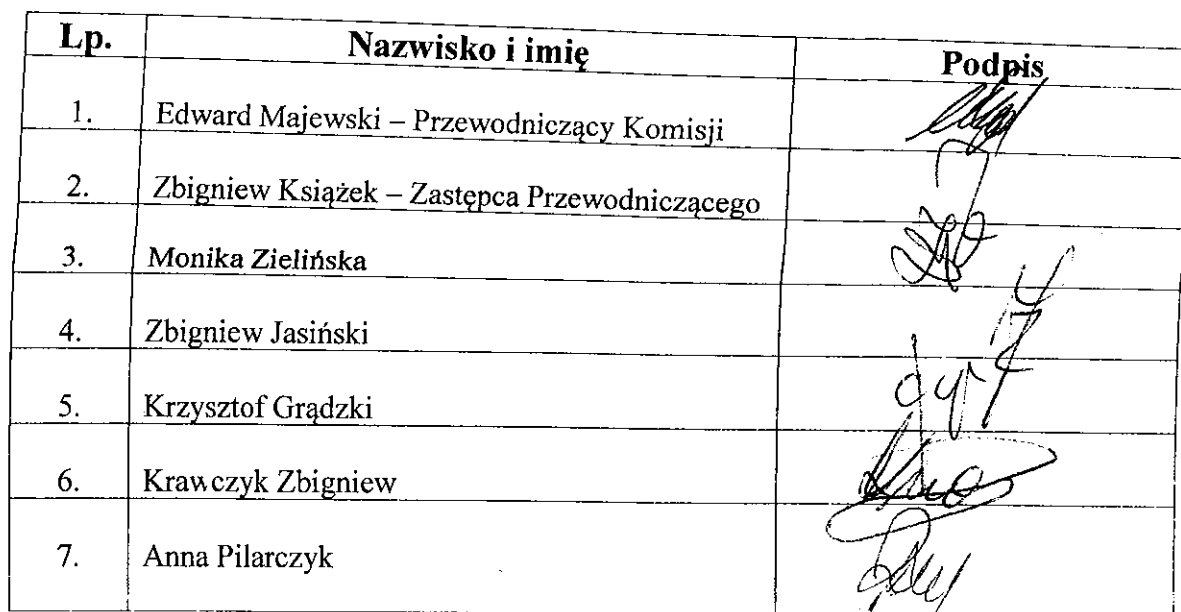 Lp. Nazwisko i imię Podpis
1. Edward Majewski – Przewodniczący Komisji
2. Zbigniew Książek – Zastępca Przewodniczącego
3. Monika Zielińska
4. Zbigniew Jasiński
5. Krzysztof Grądzki
6. Krawczyk Zbigniew
7. Anna Pilarczyk